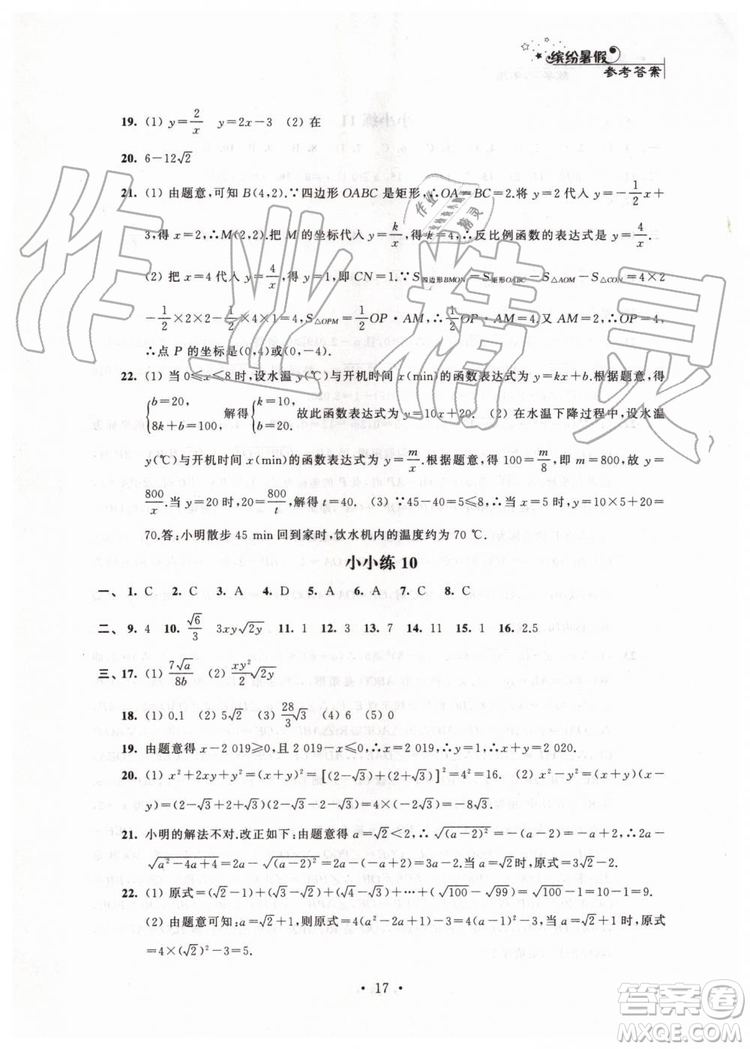 缤纷暑假
参考答案
19. (1) y=2/x y=2x-3 (2) 在
20. 6-12√2
21. (1) 由题意,可知 B(4,2).∵四边形 OABC 是矩形,∴OA=BC=2.将 y=2 代入 y=-1/2x+
3,得 x=2,∴M(2,2).把 M 的坐标代入 y=k/x,得 k=4,∴反比例函数的表达式为 y=4/x.
(2) 把 x=4 代入 y=4/x,得 y=1,即 CN=1.∵S四边形BMON=S矩形OABC-S△AOM-S△CON=4×2
-1/2×2×2-1/2×4×1=4,S△OPM=1/2OP·AM,∴1/2OP·AM=4.∵AM=2,∴OP=4,
∴点 P 的坐标是(0,4)或(0,-4).
22. (1) 当 0≤x≤8时,设水温 y(℃)与开机时间 x(min)的函数表达式为 y=kx+b.根据题意,得
{b=20, 8k+b=100, 解得{k=10, b=20. 故此函数表达式为 y=10x+20. (2) 在水温下降过程中,设水温
y(℃)与开机时间 x(min)的函数表达式为 y=m/x.根据题意,得 100=m/8,即 m=800,故 y=
800/x.当 y=20 时,20=800/t,解得 t=40. (3) ∵45-40=5≤8,∴当 x=5 时,y=10×5+20=
70.答:小明散步 45 min 回到家时,饮水机内的温度约为 70 ℃.
小小练 10
一、1. C 2. C 3. A 4. D 5. A 6. A 7. C 8. C
二、9. 4 10. √6/3 3xy√2y 11. 1 12. 3 13. 7 14. 11 15. 1 16. 2.5
三、17. (1) 7√a/8b (2) xy²/2√2y
18. (1) 0.1 (2) 5√2 (3) 28/3√3 (4) 6 (5) 0
19. 由题意得 x-2 019≥0,且 2 019-x≥0,∴x=2 019,∴y=1,∴x+y=2 020.
20. (1) x²+2xy+y²=(x+y)²=[(2-√3)+(2+√3)]²=4²=16. (2) x²-y²=(x+y)(x-
y)=(2-√3+2+√3)(2-√3-2-√3)=4×(-2√3)=-8√3.
21. 小明的解法不对.改正如下:由题意得 a=√2<2,∴√(a-2)²=-(a-2)=-a+2,∴2a-
√a²-4a+4=2a-√(a-2)²=2a-(-a+2)=3a-2=3√2-2.
22. (1) 原式=(√2-1)+(√3-√2)+(√4-√3)+…+(√100-√99)=√100-1=10-1=9.
(2) 由题意可知:a=√2+1,则原式=4(a²-2a+1)-3=4(a-1)²-3,当 a=√2+1 时,原式=
4×(√2)²-3=5.
· 17 ·
作业精灵
作业精灵
答案圈
MXQE.COM